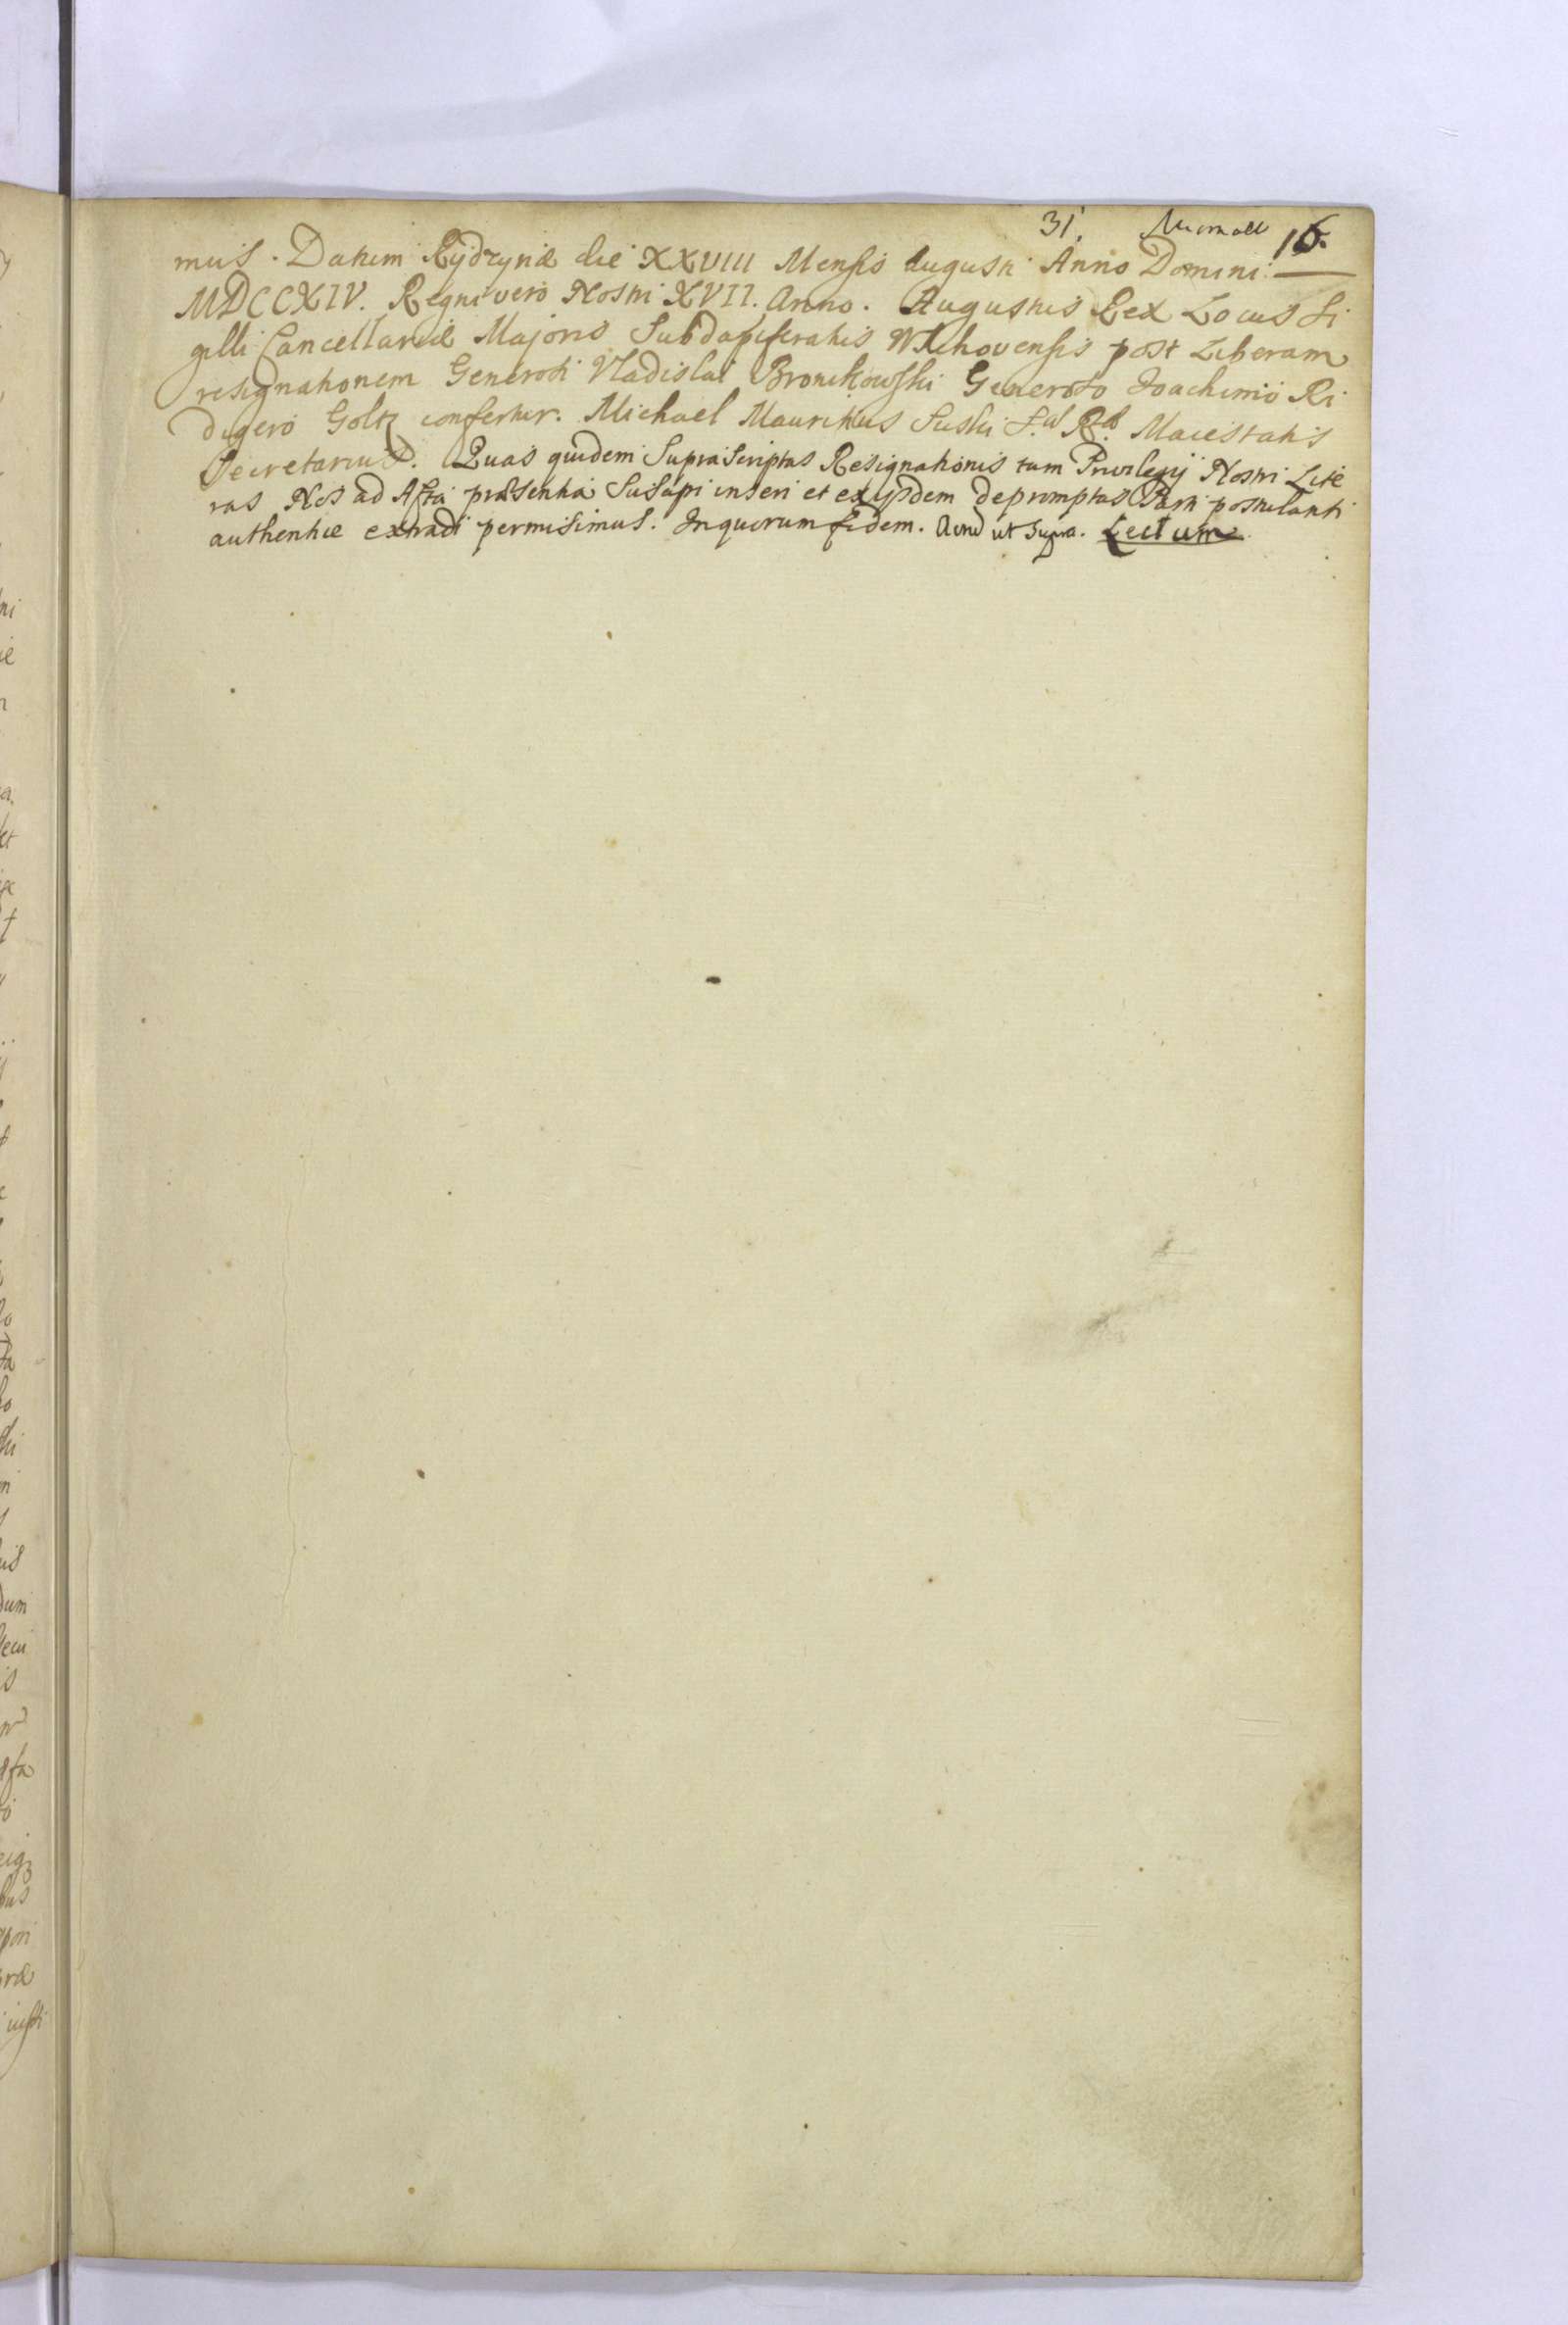 31.
16.
mus. Datum Rydzynæ die XXVIII Mensis Augusti Anno Domini
MDCCXIV. Regni vero Nostri XVII. Anno. Augustus Rex Locus Si
gilli Cancellariæ Majoris Subdapiferatus Wschovensis post Liberam
resignationem Generosi Vladislai Bronikowski Generoso Joachimo Ri
digero Goltz confertur. Michael Mauritius Suski S. R. Maiestatis
Secretarius. Quas quidem Suprascriptas Resignationis tum Privilegij Nostri Lite
ras Nos ad Acta præsentia Suscipi inseri et ex ijsdem depromptas Parti postulanti
authentice extradi permisimus. In quorum fidem. Actum ut Supra. Lectum